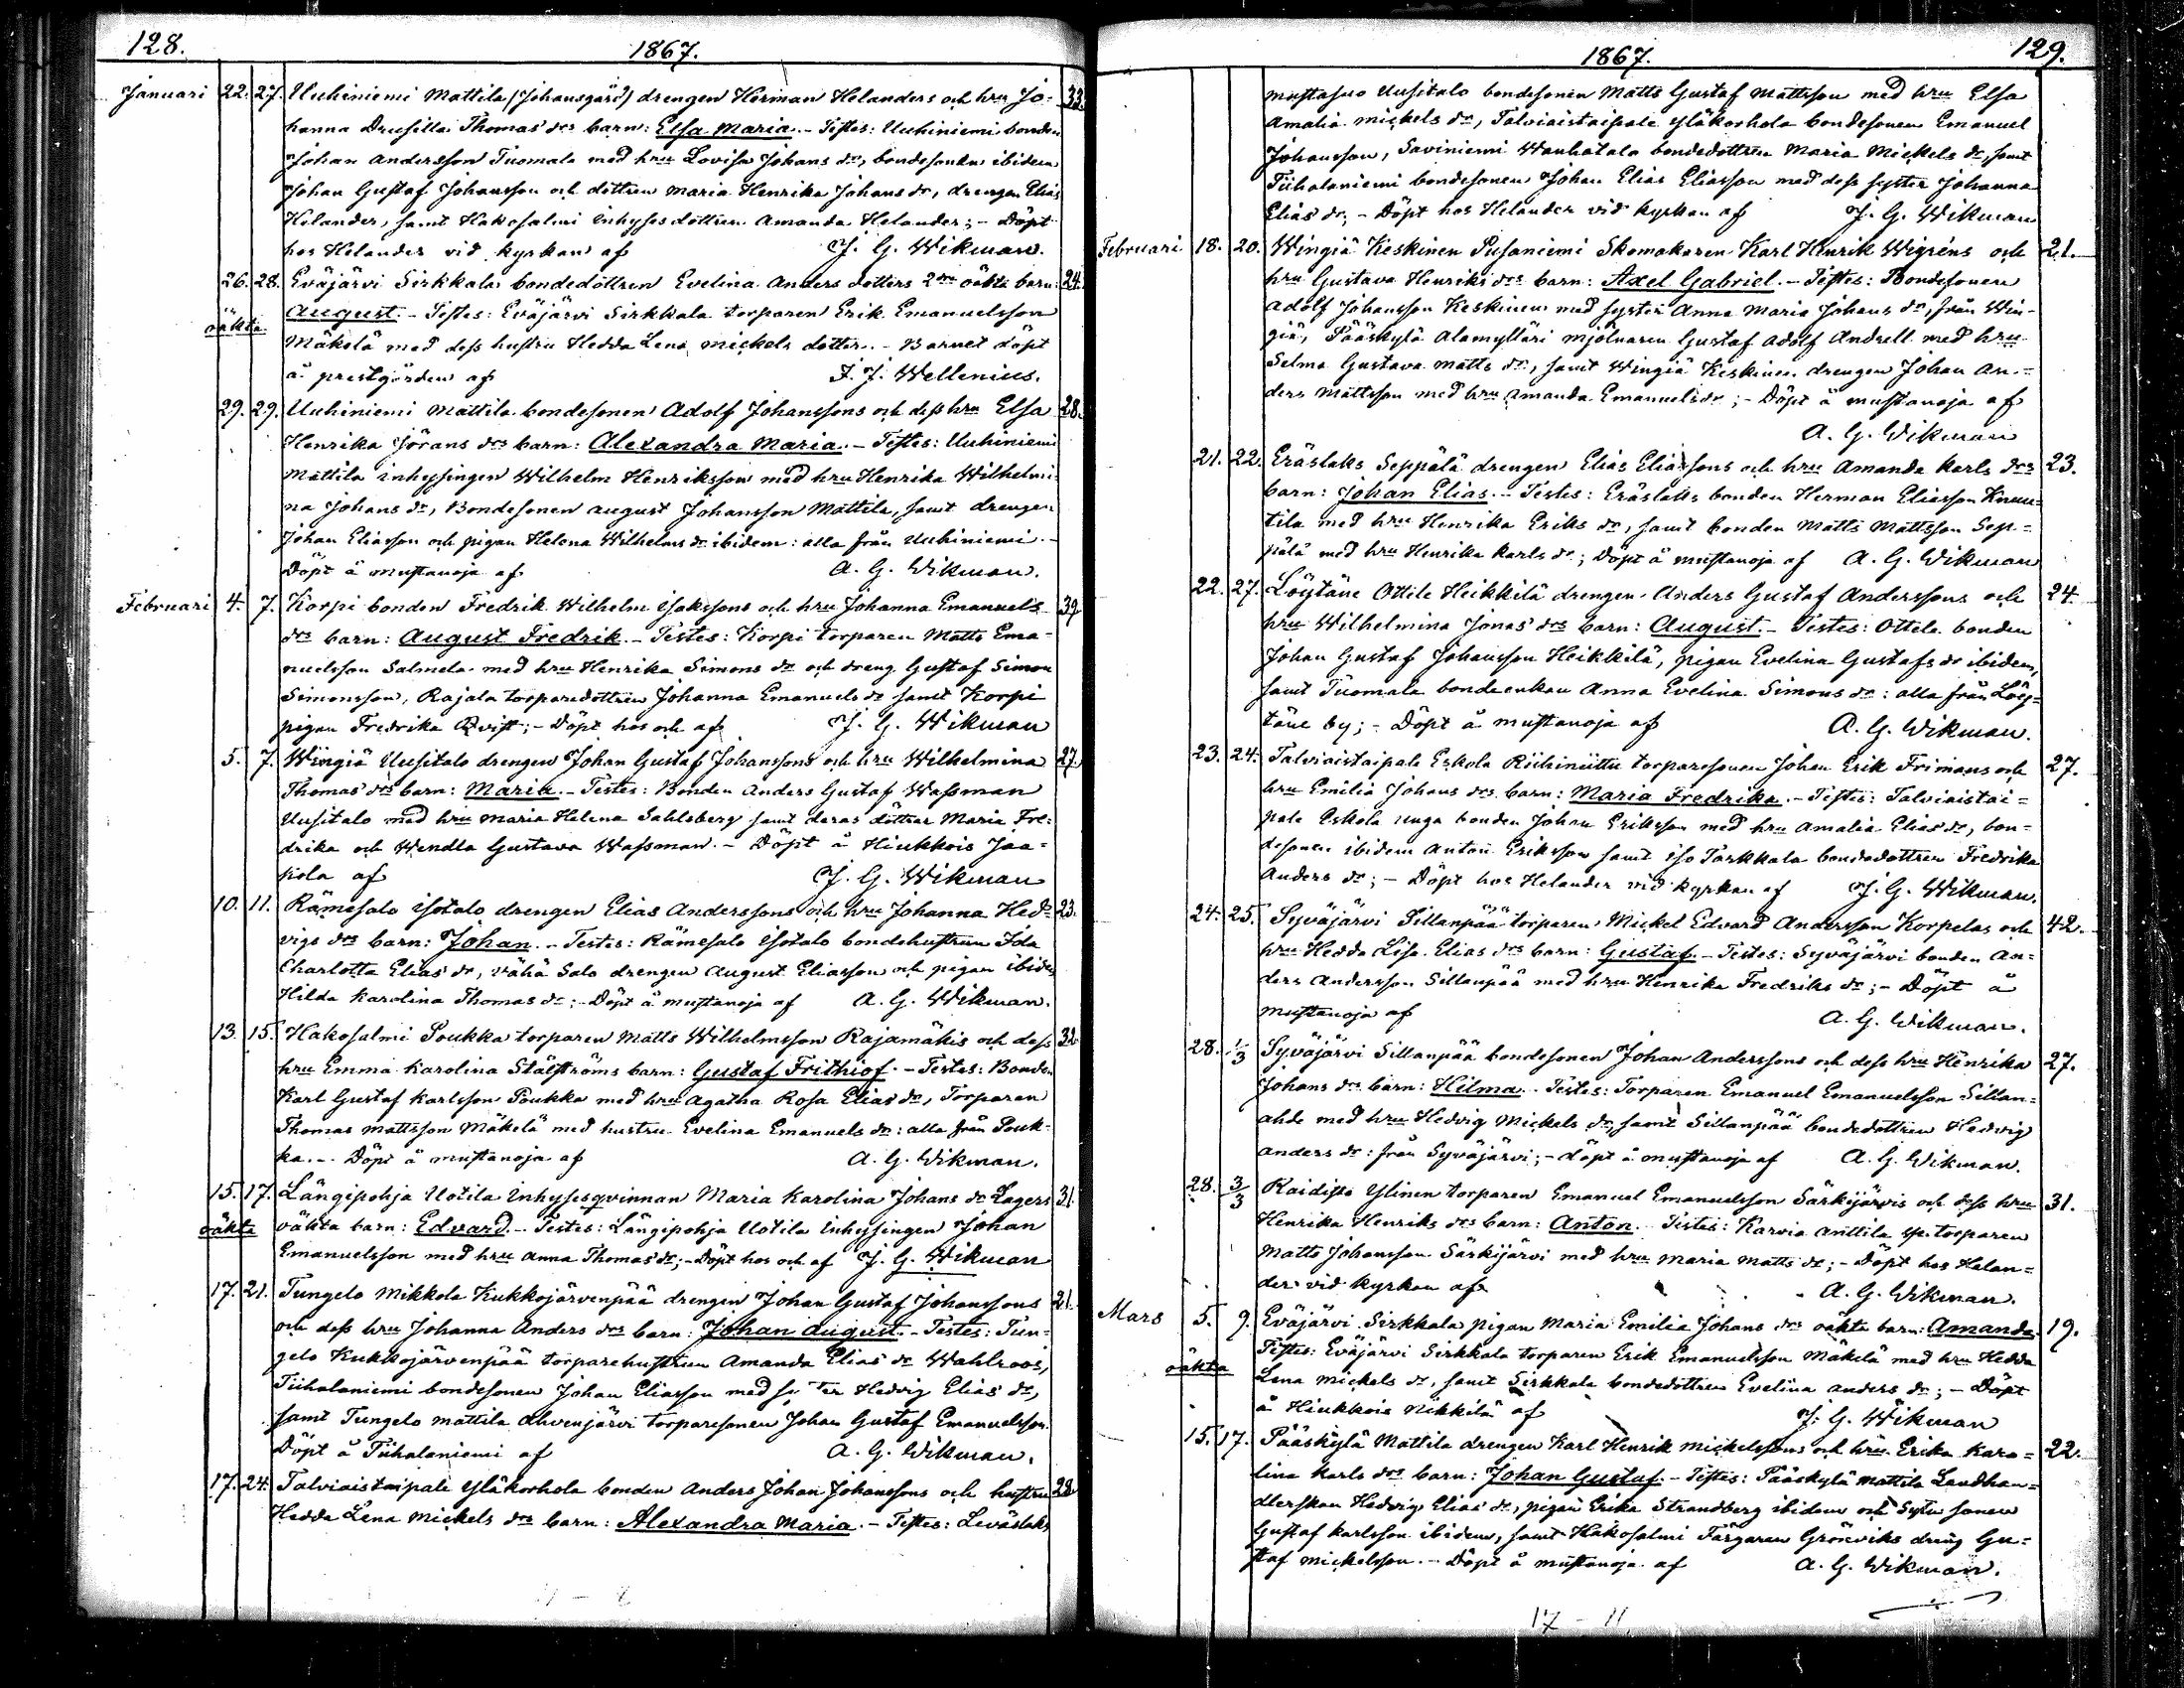 128.
1867.
Januari 22. 27. Uuhiniemi Mattila (Johansgård) drengen Herman Helanders och hru Jo= 33.
hanna Drusilla Thomas drs barn: Elsa Maria. - Testes: Uuhiniemi bonden
Johan Andersson Tuomala med hru Lovisa Johans dr, bondesonen ibidem
Johan Gustaf Johansson och dottren Maria Henrika Johans dr, drengen Elias
Helander, samt Hakosalmi inhysesdottren Amanda Helander; - Döpt
hos Helander vid kyrkan af J. G. Wikman.
26. 28. Eväjärvi Sirkkala bondedottren Evelina Anders dotters 2dra oäkta barn: 24.
oäkta August. - Testes: Eväjärvi Sirkkala torparen Erik Emanuelsson
Mäkelä med dess hustru Hedda Lena Mickels dotter. - Barnet döpt
å prestgården af J. J. Wellenius.
29. 29. Uuhiniemi Mattila bondesonen Adolf Johanssons och dess hru Elsa 28.
Henrika Jörans drs barn: Alexandra Maria. - Testes: Uuhiniemi
Mattila inhysingen Wilhelm Henriksson med hru Henrika Wilhelmi
na Johans dr, Bondesonen August Johansson Mattila, samt drengen
Johan Eliasson och pigan Helena Wilhelms dr ibidem: alla från Uuhiniemi. -
Döpt å Mustanoja af A. G. Wikman.
Februari 4. 7. Korpi bonden Fredrik Wilhelm Isakssons och hru Johanna Emanuels 39
drs barn: August Fredrik. - Testes: Korpi torparen Matts Ema=
nuelsson Salmela med hru Henrika Simons dr och dreng Gustaf Simon
Simonsson, Rajala torparedottren Johanna Emanuels dr samt Korpi
pigan Fredrika Qvist; - Döpt hos och af J. G. Wikman
5. 7. Wingiä Uusitalo drengen Johan Gustaf Johanssons och hru Wilhelmina 27.
Thomas drs barn: Maria. - Testes: Bonden Anders Gustaf Wassman
Uusitalo med hru Maria Helena Sahlsberg samt deras döttrar Maria Fre=
drika och Wendla Gustava Wassman. - Döpt å Hiukkois Jaa=
kola af J. G. Wikman
10. 11. Rämesalo Isotalo drengen Elias Anderssons och hru Johanna Hed= 23.
vigs drs barn: Johan. - Testes: Rämesalo Isotalo bondehustrun Ida
Charlotta Elias dr, Vähä Salo drengen August Eliasson och pigan ibidem
Hilda Karolina Thomas dr; - Döpt å Mustanoja af A. G. Wikman.
13. 15. Hakosalmi Poukka torparen Matts Wilhelmsson Rajamäkis och dess 32
hru Emma Karolina Stålströms barn: Gustaf Frithiof. - Testes: Bonden
Karl Gustaf Karlsson Poukka med hru Agatha Rosa Elias dr, Torparen
Thomas Mattsson Mäkelä med hustru Evelina Emanuels dr: alla från Pouk=
ka. - Döpt å Mustanoja af A. G. Wikman.
15. 17. Längipohja Uotila inhysesqvinnan Maria Karolina Johans dr Lagers 31.
oäkta oäkta barn: Edvard. - Testes: Längipohja Uotila inhysingen Johan
Emanuelsson med hru Anna Thomas dr; - Döpt hos och af J. G. Wikman
17. 21. Tungelo Mikkola Kukkojärvenpää drengen Johan Gustaf Johanssons 21.
och dess hru Johanna Anders drs barn: Johan August. - Testes: Tun=
gelo Kukkojärvenpää torparehustrun Amanda Elias dr Wahlroos,
Tiihalaniemi bondesonen Johan Eliasson med syster Hedvig Elias dr,
samt Tungelo Mattila Ahvenjärvi torparesonen Johan Gustaf Emanuelsson.
Döpt å Tiihalaniemi af A. G. Wikman.
17. 24. Talviaistaipale Yläkorhola bonden Anders Johan Johanssons och hustru 28
Hedda Lena Mickels drs barn: Alexandra Maria. - Testes: Leväslaks
1867.
129.
Mustasuo Uusitalo bondesonen Matts Gustaf Mattsson med hru Elsa
Amalia Mickels dr, Talviaistaipale Yläkorhola bondesonen Emanuel
Johansson, Saviniemi Wanhatalo bondedottren Maria Mickels dr, samt
Tiihalaniemi bondesonen Johan Elias Eliasson med dess syster Johanna
Elias dr; - Döpt hos Helander vid kyrkan af J. G. Wikman
Februari 18. 20. Wingiä Keskinen Pusaniemi Skomakaren Karl Henrik Wigréns och 21.
hru Gustava Henriks drs barn: Axel Gabriel. - Testes: Bondesonen
Adolf Johansson Keskinen med syster Anna Maria Johans dr, från Win-
giä, Pääskylä Alamylläri mjölnaren Gustaf Adolf Andsell med hru
Selma Gustava Matts dr, samt Wingiä Keskinen drengen Johan An=
ders Mattsson med hru Amanda Emanuels dr; - Döpt å Mustanoja af
A. G. Wikman
21. 22. Eräslaks Seppälä drengen Elias Eliassons och hru Amanda Karls drs 23.
barn: Johan Elias. - Testes: Eräslaks bonden Herman Eliasson Knuu=
tila med hru Henrika Eriks dr, samt bonden Matts Mattsson Sep=
pälä med hru Henrika Karls dr; Döpt å Mustanoja af A. G. Wikman
22. 27. Löytäne Ottile Heikkilä drengen Anders Gustaf Anderssons och 24.
hru Wilhelmina Jonas drs barn: August. - Testes: Ottela bonden
Johan Gustaf Johansson Heikkilä, pigan Evelina Gustafs dr ibidem,
samt Tuomala bondeenkan Anna Evelina Simons dr: alla från Löy=
täne by; - Döpt å Mustanoja af A. G. Wikman.
23. 24. Talviaistaipale Eskola Riihiniittu torparesonen Johan Erik Frimans och 27.
hru Emilia Johans drs barn: Maria Fredrika. - Testes: Talviaistai=
pale Eskola unga bonden Johan Eriksson med hru Amalia Elias dr, bon=
desonen ibidem Anton Eriksson samt Iso Tarkkala bondedottren Fredrika
Anders dr; - Döpt hos Helander vid kyrkan af J. G. Wikman.
24. 25. Syväjärvi Sillanpää torparen Mickel Edvard Andersson Korpelas och 42.
hru Hedda Lisa Elias drs barn: Gustaf. - Testes: Syväjärvi bonden An=
ders Andersson Sillanpää med hru Henrika Fredriks dr; - Döpt å
Mustanoja af A. G. Wikman.
28. 1/3 Syväjärvi Sillanpää bondesonen Johan Anderssons och dess hru Henrika 27.
Johans drs barn: Hilma. - Testes: Torparen Emanuel Emanuelsson Sillan=
ahde med hru Hedvig Mickels dr, samt Sillanpää bondedottren Hedvig
Anders dr: från Syväjärvi; - döpt å Mustanoja af A. G. Wikman.
28. 3/3 Raidisto Ylinen torparen Emanuel Emanuelsson Särkijärvis och dess hru 31.
Henrika Henriks drs barn: Anton. Testes: Karvia Anttila sp. torparen
Matts Johansson Särkijärvi med hru Maria Matts dr; - Döpt hos Helan=
der vid kyrkan af A. G. Wikman.
Mars 5. 9. Eväjärvi Sirkkala pigan Maria Emilia Johans drs oäkta barn: Amanda. 19.
oäkta Testes: Eväjärvi Sirkkala torparen Erik Emanuelsson Mäkelä med hru Hedda
Lena Mickels dr, samt Sirkkala bondedottren Evelina Anders dr; - Döpt
å Hiukkois Nikkilä af J. G. Wikman
15. 17. Pääskylä Mattila drengen Karl Henrik Mickelssons och hru Erika Karo= 22.
lina Karls drs barn: Johan Gustaf. - Testes: Pääskylä Mattila Landhan=
dlerskan Hedvig Elias dr, pigan Erika Strandberg ibidem och sonen
Gustaf Karlsson ibidem, samt Hakosalmi Färgaren Grönviks dreng Gu=
staf Mickelsson. - Döpt å Mustanoja af A. G. Wikman.
17 - 11